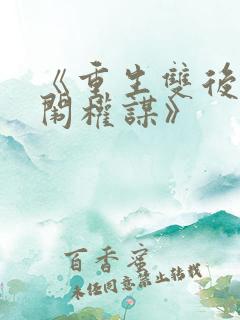 《重生雙後
鬧權謀》
百香蜜
未经同意禁止转载